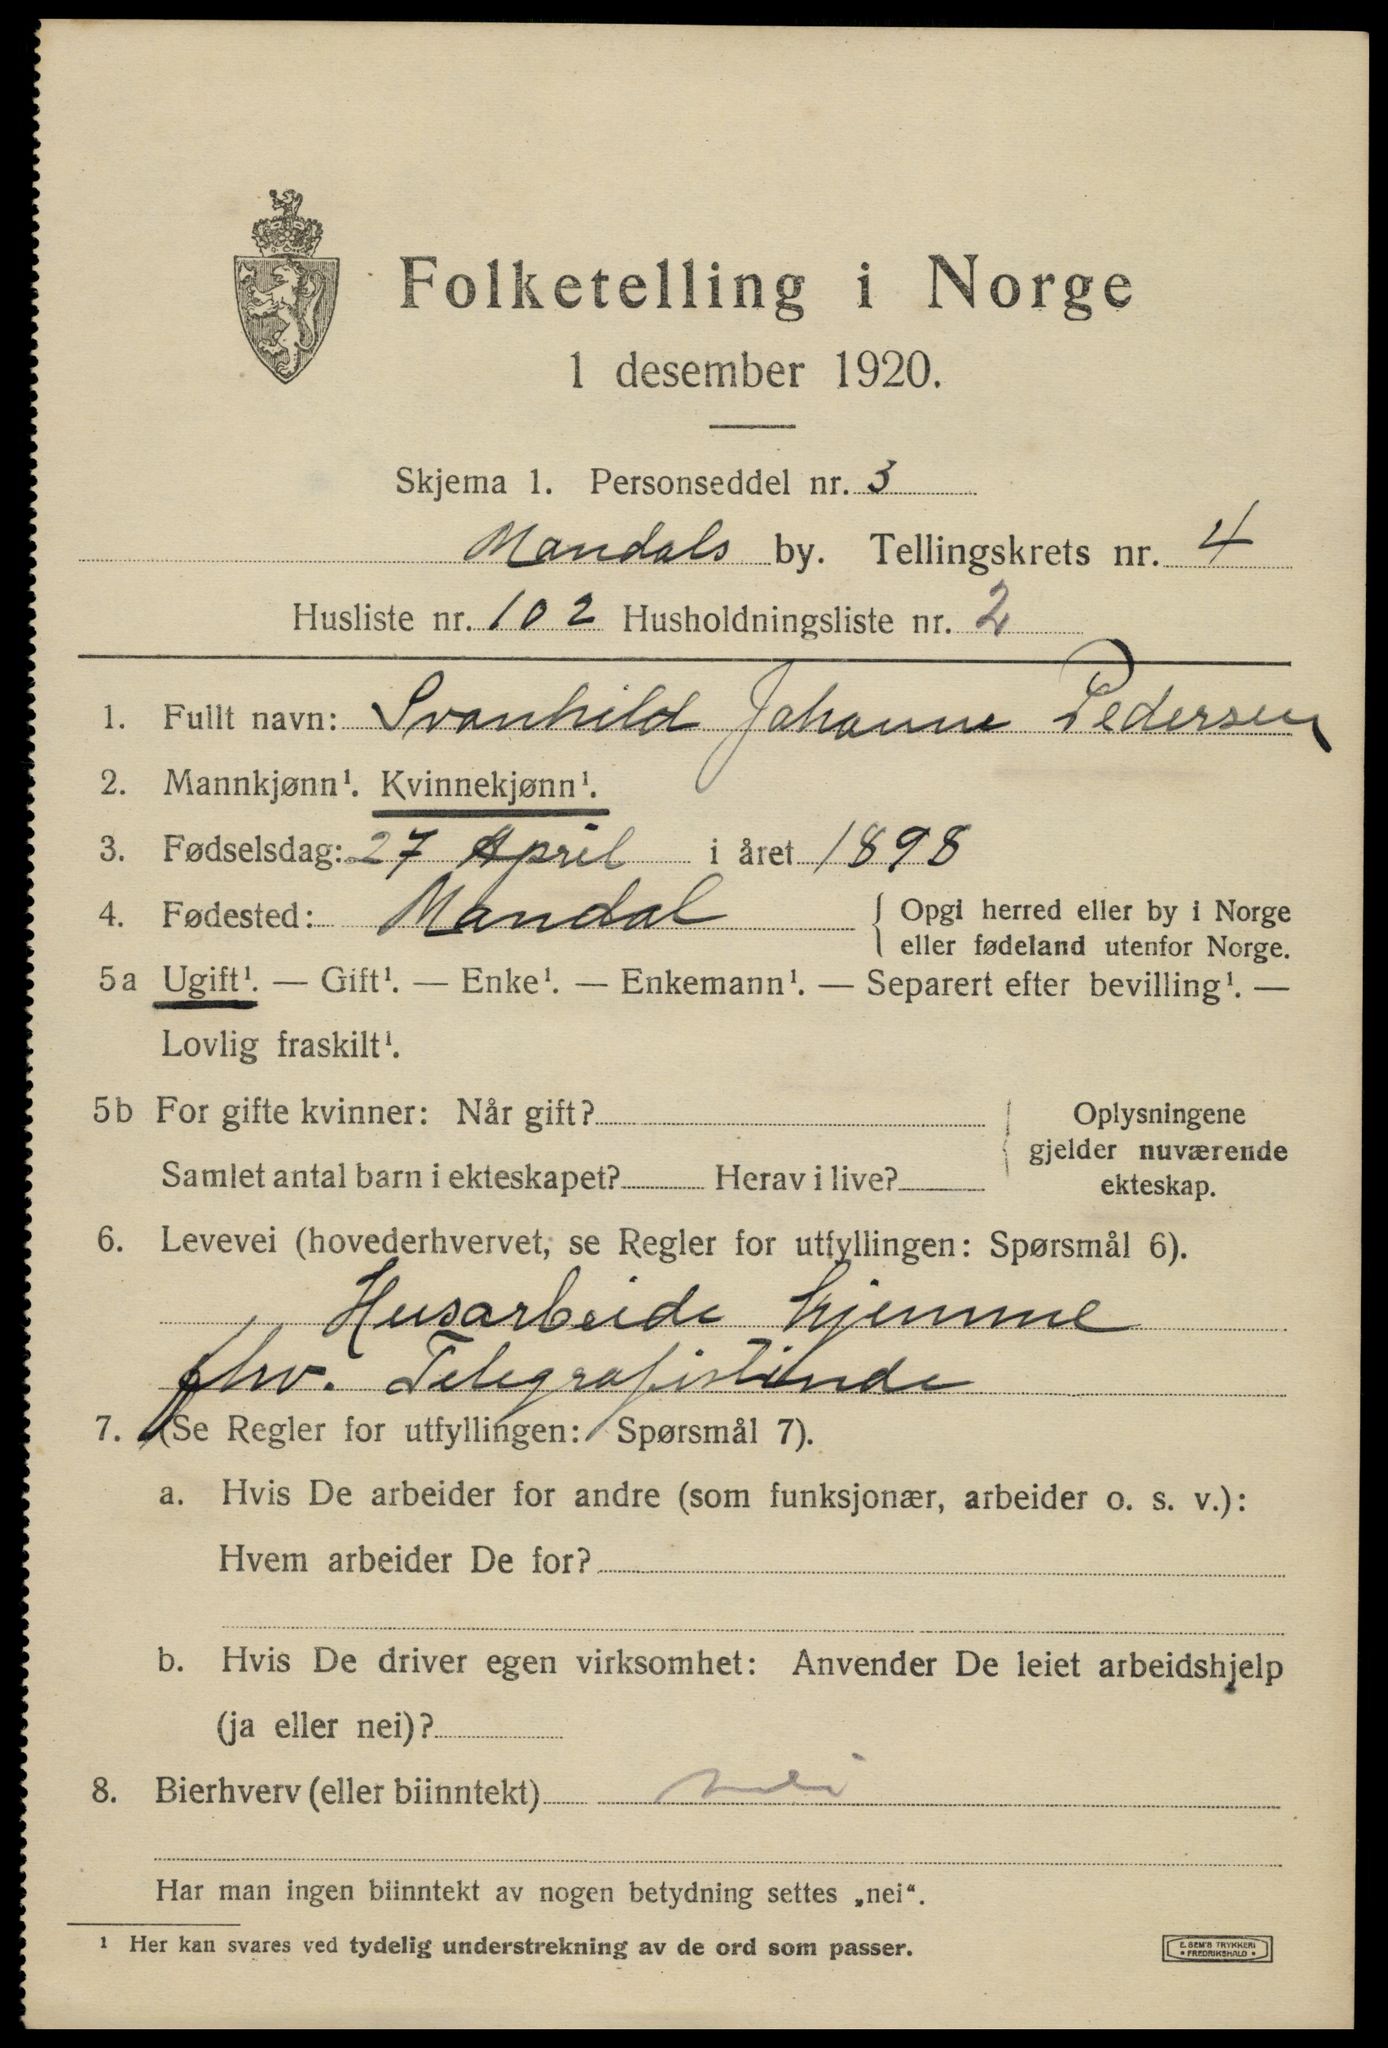 Folketelling i Norge
1 desember 1920.
Skjema 1. Personseddel nr. 3
Mandals by. Tellingskrets nr. 4
Husliste nr. 102 Husholdningsliste nr. 2
1. Fullt navn: Svanhild Johanne Pedersen
2. Mannkjønn¹. Kvinnekjønn¹.
3. Fødselsdag: 27 April i året 1898
4. Fødested: Mandal { Opgi herred eller by i Norge
eller fødeland utenfor Norge.
5a Ugift¹. — Gift¹. — Enke¹. — Enkemann¹. — Separert efter bevilling¹. —
Lovlig fraskilt¹.
5b For gifte kvinner: Når gift?
Samlet antal barn i ekteskapet? Herav i live?
Oplysningene
gjelder nuværende
ekteskap.
6. Levevei (hovederhvervet, se Regler for utfyllingen: Spørsmål 6).
Husarbeide hjemme
fhv. Telegrafistinde
7. (Se Regler for utfyllingen: Spørsmål 7).
a. Hvis De arbeider for andre (som funksjonær, arbeider o. s. v.):
Hvem arbeider De for?
b. Hvis De driver egen virksomhet: Anvender De leiet arbeidshjelp
(ja eller nei)?
8. Bierhverv (eller biinntekt) nei
Har man ingen biinntekt av nogen betydning settes „nei“.
¹ Her kan svares ved tydelig understrekning av de ord som passer.
E. SEM'S TRYKKERI
• FREDRIKSHALD •